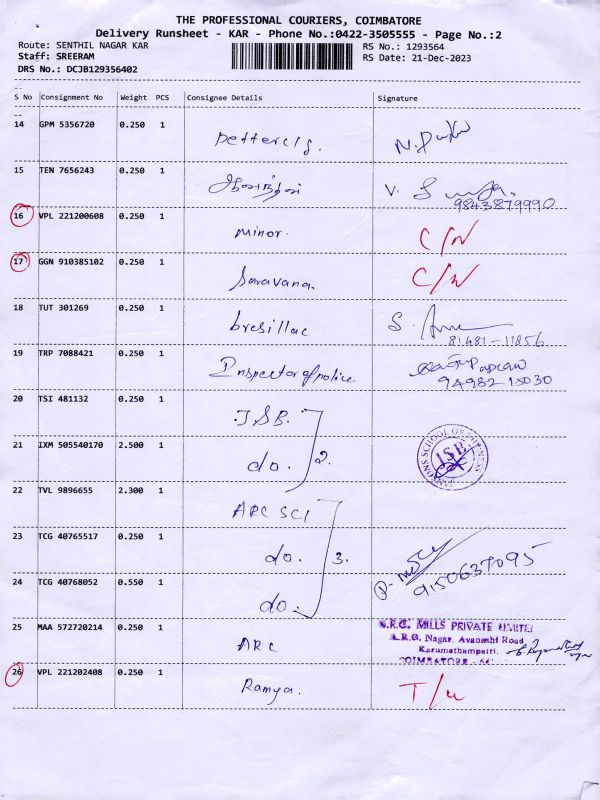 THE PROFESSIONAL COURIERS, COIMBATORE
Delivery Runsheet - KAR - Phone No.:0422-3505555 - Page No.:2
Route: SENTHIL NAGAR KAR RS No.: 1293564
Staff: SREERAM RS Date: 21-Dec-2023
DRS No.: DCJB129356402
S No Consignment No Weight PCS Consignee Details Signature
14 GPM 5356720 0.250 1
15 TEN 7656243 0.250 1 V.
9843879990
16 VPL 221200608 0.250 1 minor. C/N
17 GGN 910385102 0.250 1 Saravana. C/N
18 TUT 301269 0.250 1 bresillac S.
81481-11856
19 TRP 7088421 0.250 1 Inspector of police
94982-15030
20 TSI 481132 0.250 1 JSB.
21 IXM 505540170 2.500 1 do. 2. JANSONS SCHOOL OF BUSINESS JSB
22 TVL 9896655 2.300 1 ARC SCI
23 TCG 40765517 0.250 1 do. 3.
24 TCG 40768052 0.550 1 do. 9150637095
25 MAA 572720214 0.250 1 ARC K.R.G. MILLS PRIVATE LIMITED
A.R.G. Nagar, Avanashi Road
Karumathampatti,
COIMBATORE
26 VPL 221202408 0.250 1 Ramya. T/U